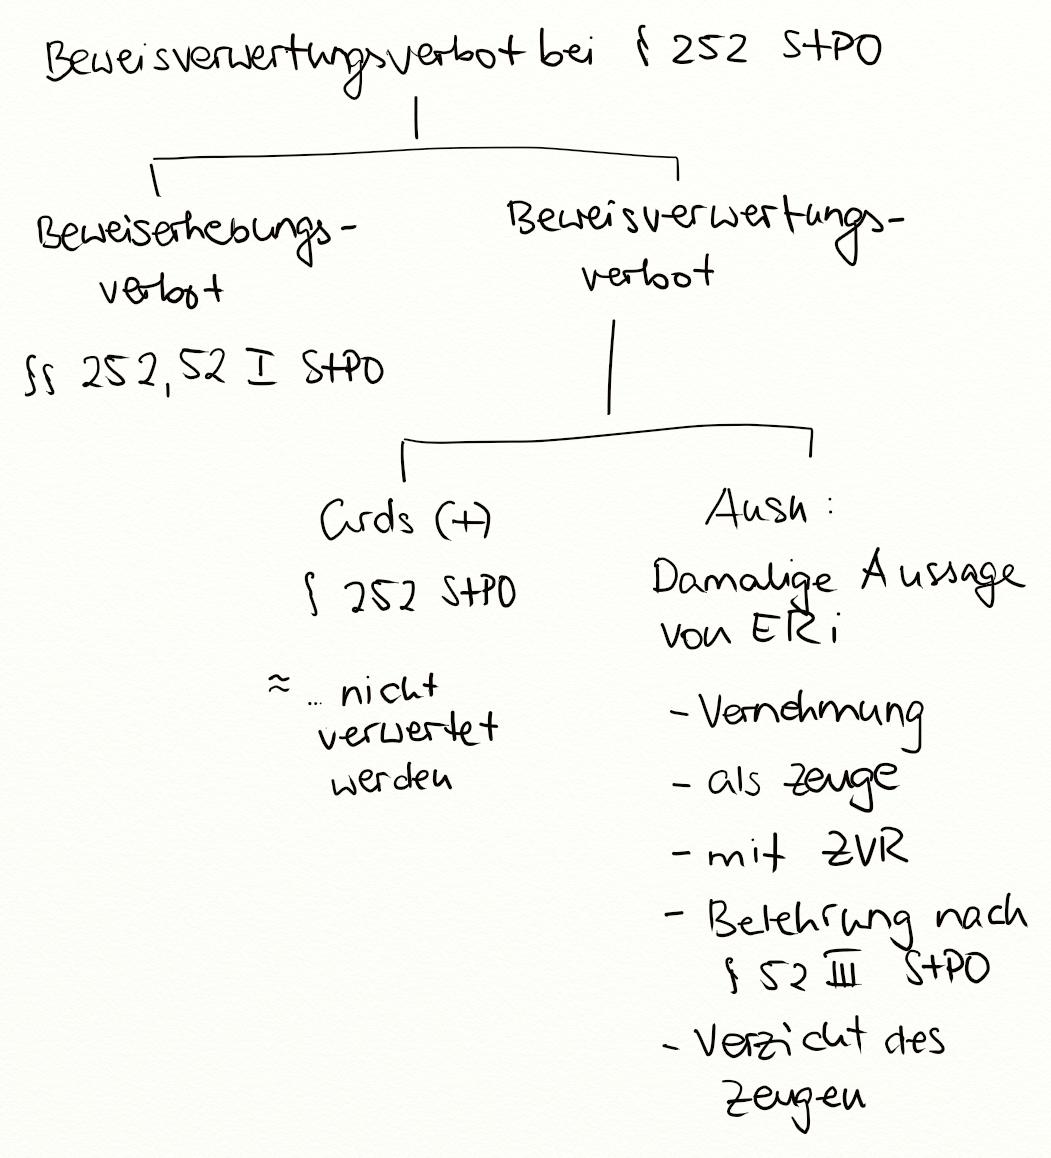 Beweisverwertungsverbot bei § 252 StPO
Beweiserhebungs-
verbot
§§ 252, 52 I StPO
Beweisverwertungs-
verbot
Grds (+)
§ 252 StPO
≈ ... nicht
verwertet
werden
Ausn:
Damalige Aussage
von ERi
- Vernehmung
- als Zeuge
- mit ZVR
- Belehrung nach
§ 52 III StPO
- Verzicht des
Zeugen